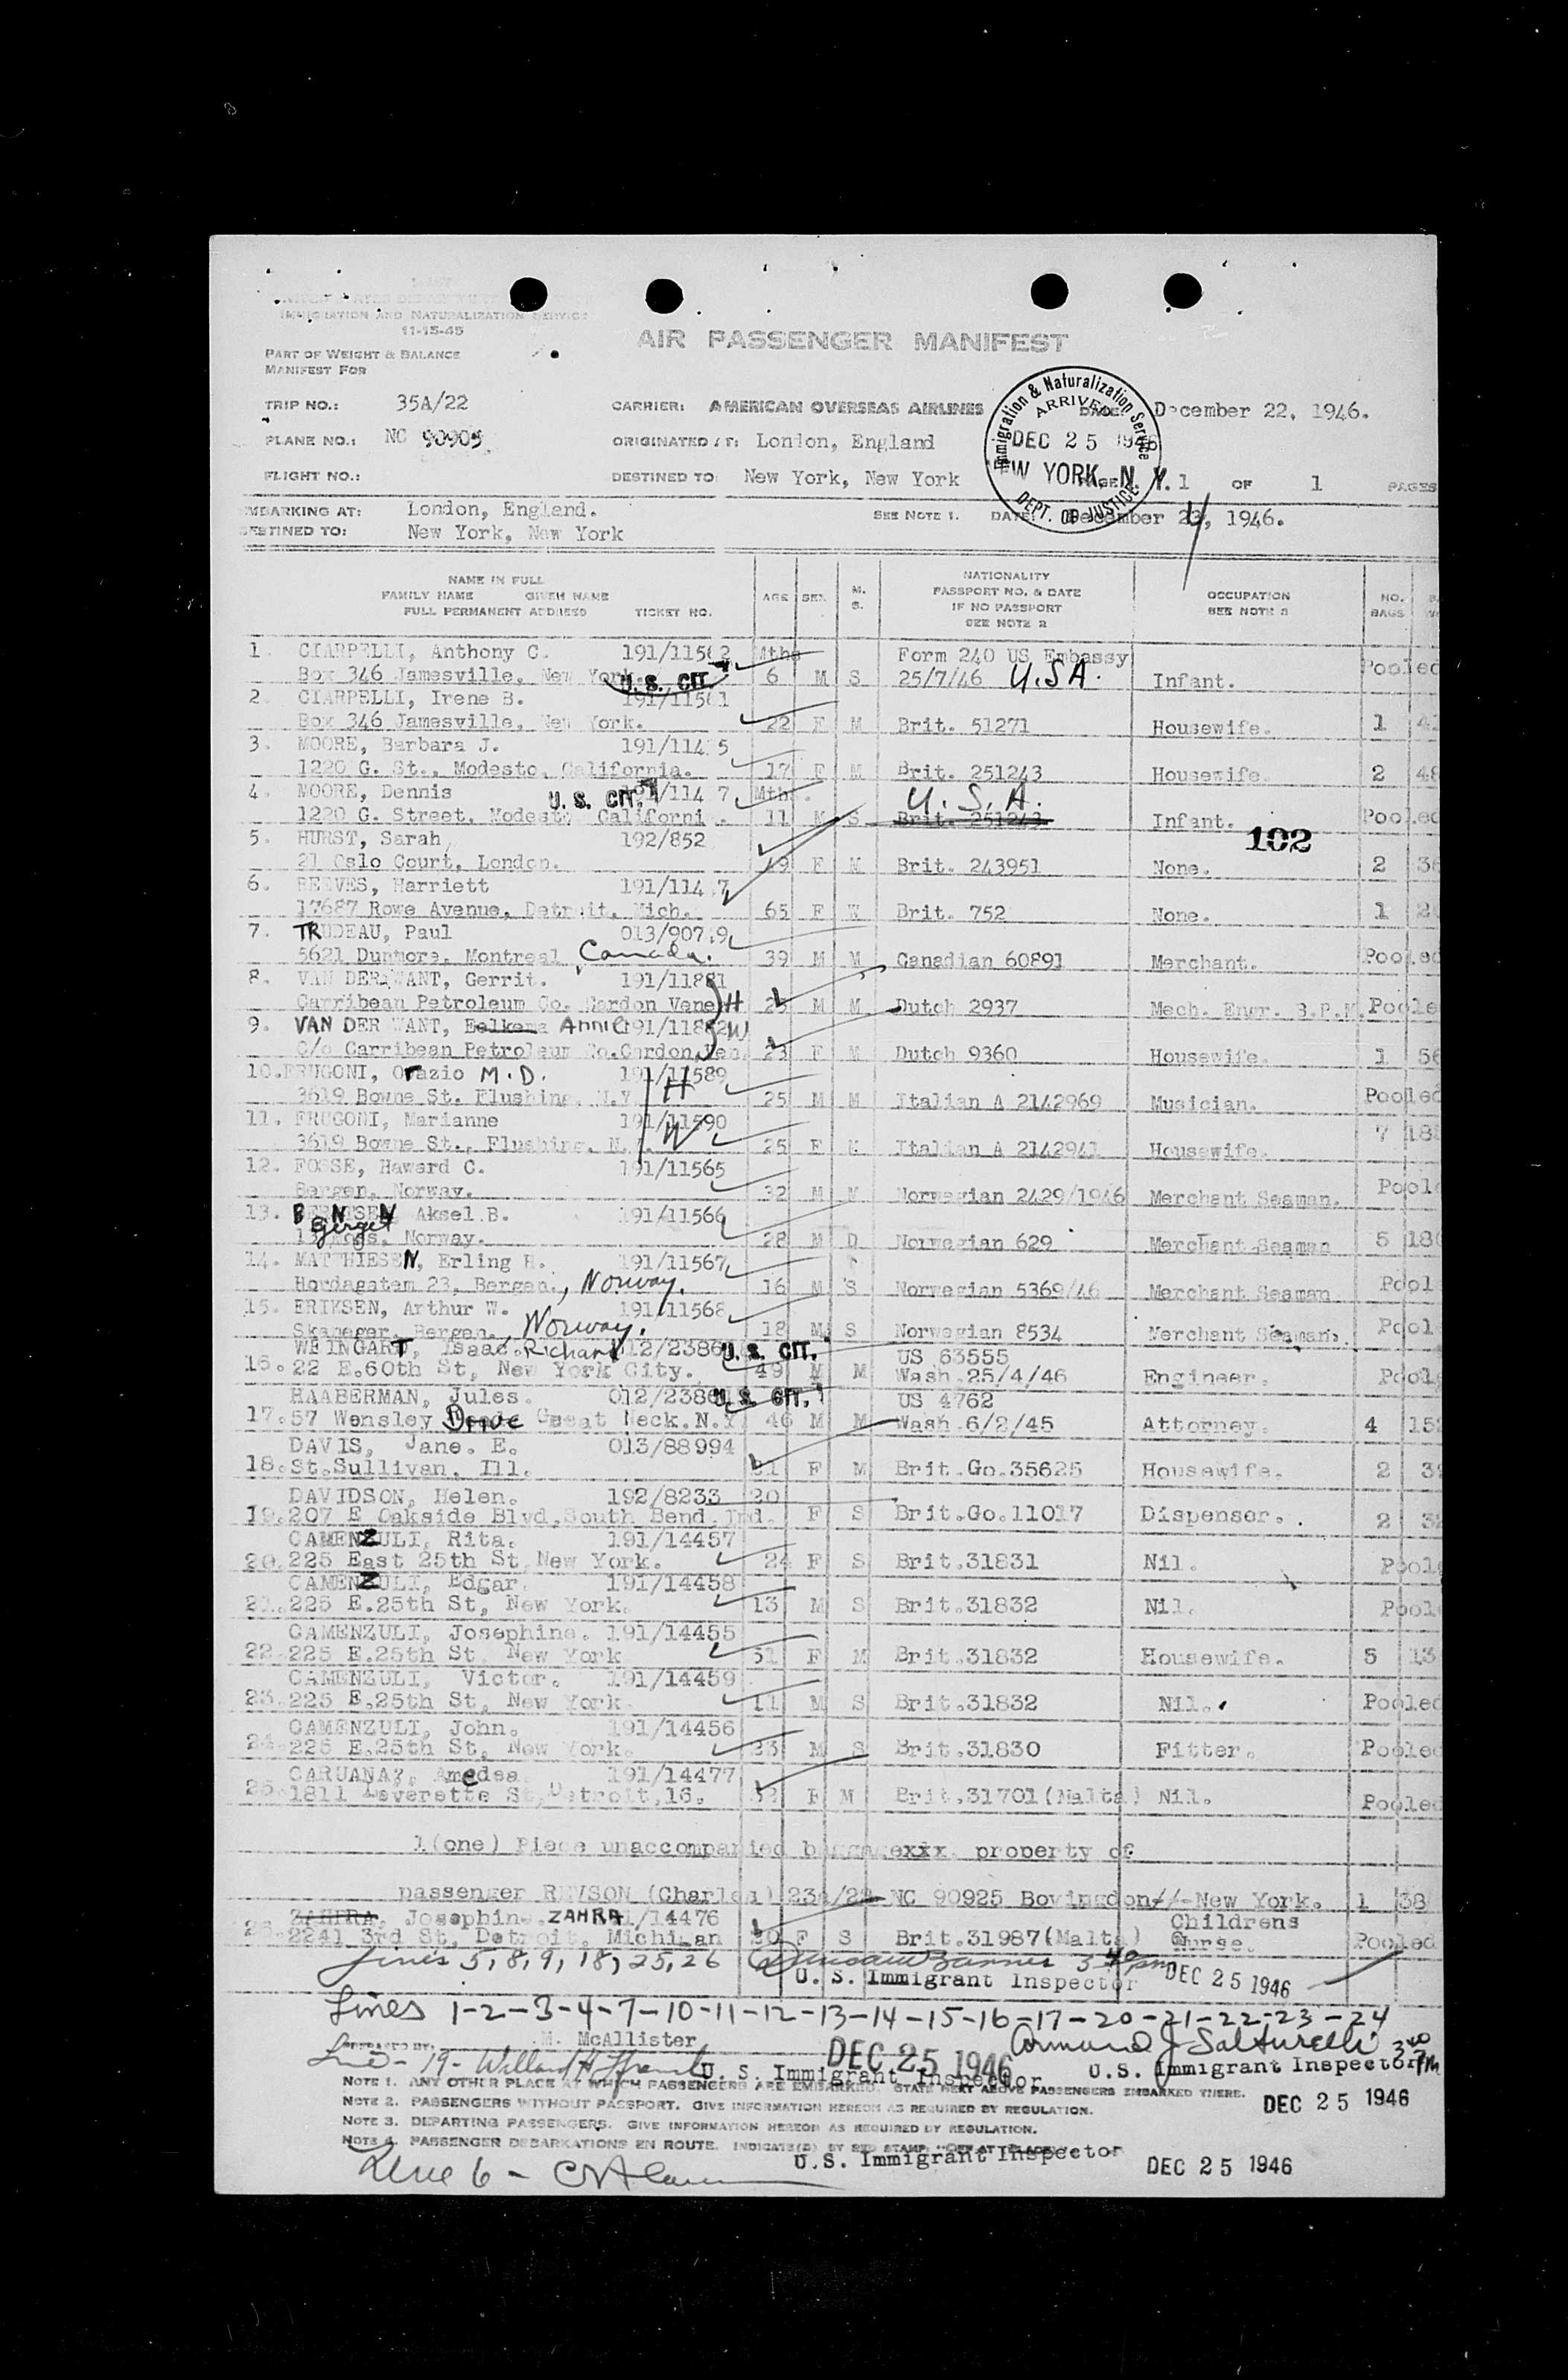 IMMIGRATION AND NATURALIZATION SERVICE
11-15-45
AIR PASSENGER MANIFEST
PART OF WEIGHT & BALANCE
MANIFEST FOR
TRIP NO.: 35A/22 CARRIER: AMERICAN OVERSEAS AIRLINES DATE: December 22, 1946.
PLANE NO.: NC 90905 ORIGINATED AT: London, England
FLIGHT NO.: DESTINED TO: New York, New York PAGE 1 OF 1 PAGES
Immigration & Naturalization Service
ARRIVED
DEC 25 1946
NEW YORK, N. Y.
DEPT. OF JUSTICE
EMBARKING AT: London, England. SEE NOTE 1. DATE: December 24, 1946.
DESTINED TO: New York, New York
NAME IN FULL
FAMILY NAME GIVEN NAME
FULL PERMANENT ADDRESS TICKET NO. AGE SEX M. S. NATIONALITY PASSPORT NO. & DATE IF NO PASSPORT SEE NOTE 2 OCCUPATION SEE NOTE 3 NO. BAGS
1. CIARPELLI, Anthony C. 191/11562 Mths Form 240 US Embassy
Box 346 Jamesville, New York. U. S. CIT. 6 M S 25/7/46 U.S.A. Infant. Pooled
2. CIARPELLI, Irene B. 191/11561
Box 346 Jamesville, New York. 22 F M Brit. 51271 Housewife. 1
3. MOORE, Barbara J. 191/114 5
1220 G. St., Modesto, California. 17 F M Brit. 251243 Housewife. 2 48
4. MOORE, Dennis U. S. CIT. 191/114 7 Mth. U.S.A.
1220 G. Street, Modesto, Californi . 11 M S Brit. 251243 Infant. Pooled
102
5. HURST, Sarah 192/852
21 Oslo Court, London. 49 F M Brit. 243951 None. 2
6. REEVES, Harriett 191/114 7
17687 Rowe Avenue, Detroit, Mich. 65 F W Brit. 752 None. 1
7. TRUDEAU, Paul 013/907 9
5621 Dunmore, Montreal, Canada. 39 M M Canadian 60891 Merchant. Pooled
8. VAN DER WANT, Gerrit. 191/11881
Carribean Petroleum Co. Cardon Vene H 25 M M Dutch 2937 Mech. Engr. B.P.M. Poole
9. VAN DER WANT, Eelkema Annie 191/11882 W
C/o Carribean Petroleum Co.Cardon,Ven. 23 F M Dutch 9360 Housewife. 1 56
10. FRUGONI, Orazio M.D. 191/11589
3619 Bowne St. Flushing, N.Y. H 25 M M Italian A 2142969 Musician. Pooled
11. FRUGONI, Marianne 191/11590
3619 Bowne St., Flushing, N.Y. W 25 F M Italian A 2142941 Housewife. 7 18
12. FOSSE, Haward C. 191/11565
Bergen, Norway. 32 M M Norwegian 2429/1946 Merchant Seaman. Pool
13. BERNTSEN, Aksel B. 191/11566
13, Moss, Norway. 28 M D Norwegian 629 Merchant Seaman 5 18
14. MATTHIESEN, Erling H. 191/11567
Hordagatam 23, Bergen., Norway. 16 M S Norwegian 5369/46 Merchant Seaman Pool
15. ERIKSEN, Arthur W. 191/11568
Skaneger, Bergen., Norway. 18 M S Norwegian 8534 Merchant Seaman. Pool
WEINGART, Isaac Richard 012/2386 U. S. CIT. US 63555
16. 22 E.60th St, New York City. 49 M M Wash.25/4/46 Engineer. Pool
HAABERMAN, Jules. 012/2386 U. S. CIT. US 4762
17. 57 Wensley Drive Great Neck.N.Y. 46 M M Wash.6/2/45 Attorney. 4 15
DAVIS, Jane. E. 013/88994
18. St.Sullivan, Ill. 21 F M Brit.Go.35625 Housewife. 2
DAVIDSON, Helen. 192/8233 20
19. 207 E Oakside Blvd,South Bend, Ind. F S Brit.Go.11017 Dispenser. 2
CAMENZULI, Rita. 191/14457
20. 225 East 25th St,New York. 24 F S Brit.31831 Nil. Pool
CAMENZULI, Edgar. 191/14458
21. 225 E.25th St, New York. 13 M S Brit.31832 Nil. Pool
CAMENZULI, Josephine. 191/14455
22. 225 E.25th St, New York 51 F M Brit.31832 Housewife. 5 13
CAMENZULI, Victor. 191/14459
23. 225 E.25th St, New York. 11 M S Brit.31832 Nil. Pooled
CAMENZULI, John. 191/14456
24. 225 E.25th St, New York. 23 M S Brit.31830 Fitter. Pooled
CARUANA, Amedea 191/14477
25. 1811 Leverette St,Detroit,16. 32 F M Brit.31701(Malta) Nil. Pooled
1(one) Piece unaccompanied baggagexxx property of
passenger REVSON (Charles) 23 /22 NC 90925 Bovingdon-//-New York. 1 38
ZAHIRA, Josephine. ZAHRA 191/14476 Childrens
26. 2241 3rd St, Detroit, Michigan 30 F S Brit.31987(Malta) Nurse. Pooled
Lines 5, 8, 9, 18, 25, 26 3 40 pm
U. S. Immigrant Inspector DEC 25 1946
Lines 1-2-3-4-7-10-11-12-13-14-15-16-17-20-21-22-23-24
PREPARED BY: M. McAllister DEC 25 1946 Armand J Salturelli 3 40 PM
Line - 19 - U. S. Immigrant Inspector U.S. Immigrant Inspector
NOTE 1. ANY OTHER PLACE AT WHICH PASSENGERS ARE EMBARKED. STATE NEXT ABOVE PASSENGERS EMBARKED THERE.
DEC 25 1946
NOTE 2. PASSENGERS WITHOUT PASSPORT. GIVE INFORMATION HEREON AS REQUIRED BY REGULATION.
NOTE 3. DEPARTING PASSENGERS. GIVE INFORMATION HEREON AS REQUIRED BY REGULATION.
NOTE 4. PASSENGER DEBARKATIONS EN ROUTE. INDICATE(D) BY RED STAMP "OFF AT (PLACE)"
U.S. Immigrant Inspector DEC 25 1946
Line 6 -